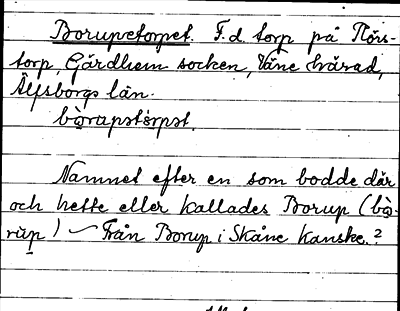 Borupetorpet. F.d. torp på Flors-
torp, Gärdhem socken, Väne härad,
Älfsborgs län.
bo̱rapstȯrpst.
Namnet efter en som bodde där
och hette eller kallades Borup (bo̱-
rup) – Från Borup i Skåne kanske.?